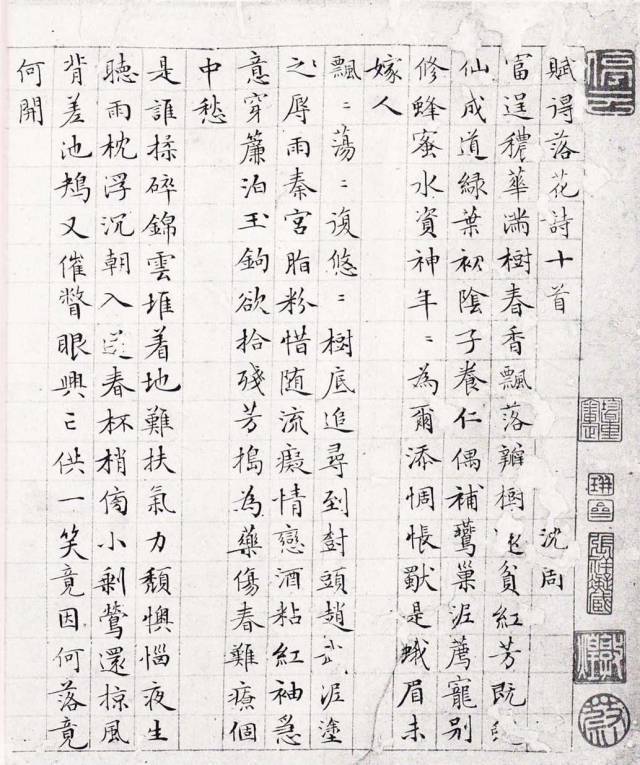 賦得落花詩十首 沈周
富逞穠華滿樹春香飄落瓣樹貧紅芳既
仙成道綠葉初陰子養仁偶補鶯巢泥薦寵別
修蜂蜜水資神年〻為爾添惆悵獸是蛾眉未
嫁人
飄〻蕩〻復悠〻樹底追尋到樹頭趙武泥塗
之辱雨秦宮脂粉惜随流癡情戀酒粘紅袖急
意穿簾泊玉鉤欲拾殘芳搗為藥傷春難療個
中愁
是誰揉碎錦雲堆着地難扶氣力頹懊惱夜生
聽雨枕浮沉朝入送春杯梢傍小剩鶯還掠風
背差池又催瞥眼興亡供一笑竟因何落竟
何開